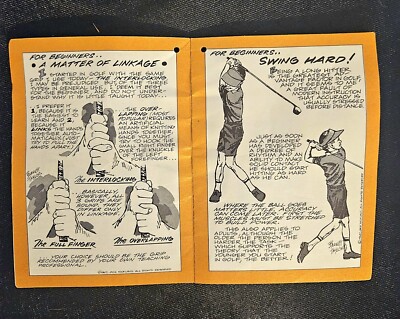 FOR BEGINNERS..
• A MATTER OF LINKAGE •
I STARTED IN GOLF WITH THE SAME
GRIP I USE TODAY — THE INTERLOCKING.
I MAY BE
PREJUDICED BUT OF THE THREE
TYPES IN GENERAL USE, I DEEM IT BEST
FOR THE BEGINNER AND DO NOT UNDER-
STAND WHY IT IS LITTLE TAUGHT TODAY...
...I PREFER IT
BECAUSE IT IS
THE EASIEST
TO LEARN AND
BECAUSE IT
LINKS THE HANDS
TOGETHER AUTO-
MATICALLY.
THE OVER-
LAPPING (MOST
POPULAR) REQUIRES
ARTIFICIAL
MEANS OF KNITTING
HANDS TOGETHER,
SMALL RIGHT FINGER
FOREFINGER...
The INTERLOCKING
BASICALLY,
HOWEVER, ALL
3 GRIPS ARE
SOUND. THEY
DIFFER ONLY
IN LINKAGE.
The FULL FINGER
The OVERLAPPING
YOUR CHOICE SHOULD BE THE GRIP
RECOMMENDED BY YOUR OWN TEACHING
PROFESSIONAL.
FOR BEGINNERS..
SWING HARD!
BEING A LONG HITTER
IS THE GREATEST AD-
VANTAGE POSSIBLE IN GOLF.
IT THUS SEEMS TO ME
A GREAT FAULT OF
MODERN INSTRUCTION
THAT ACCURACY IS
USUALLY STRESSED
BEFORE DISTANCE.
JUST AS SOON AS
A BEGINNER
HAS DEVELOPED
A DEGREE OF
RHYTHM AND AN
ABILITY TO MAKE
SOLID CONTACT
HE SHOULD START
HITTING AS HARD
AS HE CAN.
WHERE THE BALL GOES
MATTERS LITTLE. ACCURACY
CAN COME LATER. FIRST THE
MUSCLES MUST BE STRETCHED
TO BUILD POWER.
THIS ALSO APPLIES TO
ADULTS, ALTHOUGH THE
OLDER THE PERSON THE
HARDER THE TASK —
WHICH SUPPORTS THE
THEORY THAT THE
YOUNGER YOU START
IN GOLF, THE BETTER!